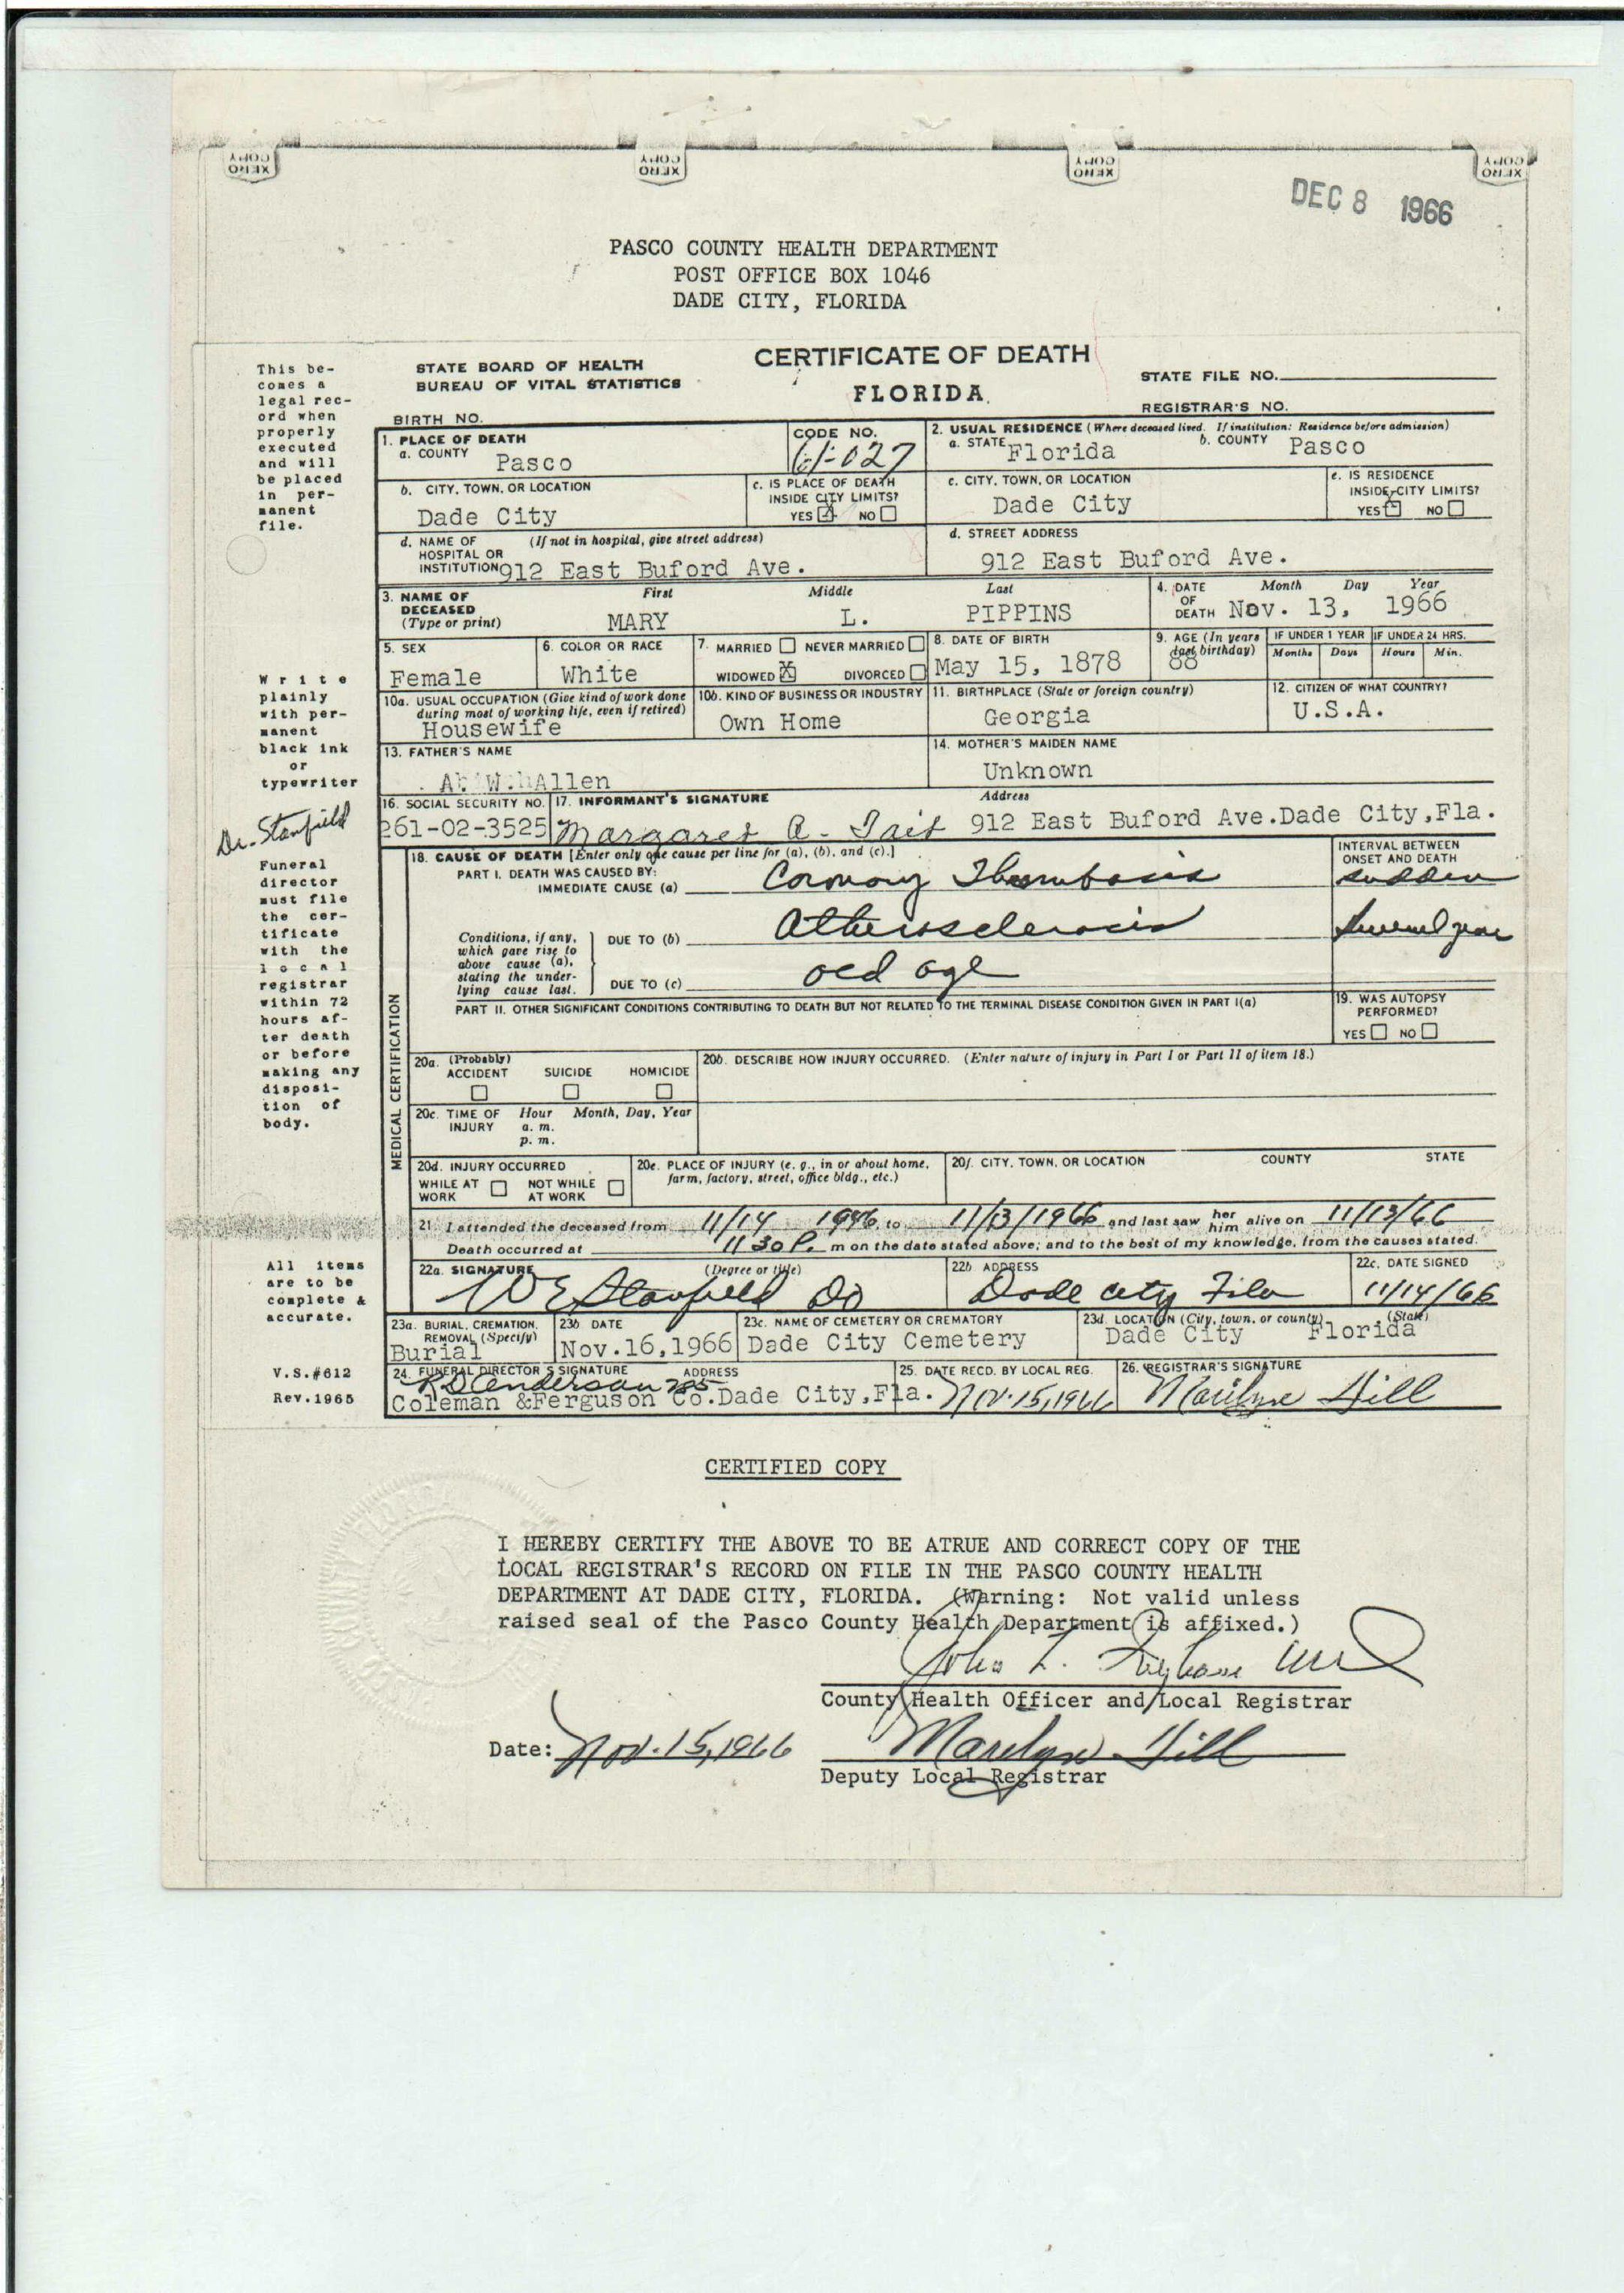 XERO COPY
XERO COPY
XERO COPY
XERO COPY
DEC 8 1966
PASCO COUNTY HEALTH DEPARTMENT
POST OFFICE BOX 1046
DADE CITY, FLORIDA
This be-
comes a
legal rec-
ord when
properly
executed
and will
be placed
in per-
manent
file.
Write
plainly
with per-
manent
black ink
or
typewriter
Dr. Stanfield
Funeral
director
must file
the cer-
tificate
with the
local
registrar
within 72
hours af-
ter death
or before
making any
disposi-
tion of
body.
All items
are to be
complete &
accurate.
V.S.#612
Rev.1965
STATE BOARD OF HEALTH
BUREAU OF VITAL STATISTICS
CERTIFICATE OF DEATH
FLORIDA
STATE FILE NO.
REGISTRAR'S NO.
BIRTH NO.
1. PLACE OF DEATH
a. COUNTY Pasco
CODE NO.
61-027
2. USUAL RESIDENCE (Where deceased lived. If institution: Residence before admission)
a. STATE Florida b. COUNTY Pasco
b. CITY, TOWN, OR LOCATION
Dade City
c. IS PLACE OF DEATH
INSIDE CITY LIMITS?
YES X NO
c. CITY, TOWN, OR LOCATION
Dade City
e. IS RESIDENCE
INSIDE CITY LIMITS?
YES NO
d. NAME OF (If not in hospital, give street address)
HOSPITAL OR
INSTITUTION 912 East Buford Ave.
d. STREET ADDRESS
912 East Buford Ave.
3. NAME OF First Middle Last
DECEASED
(Type or print) MARY L. PIPPINS
4. DATE Month Day Year
OF
DEATH Nov. 13, 1966
5. SEX
Female
6. COLOR OR RACE
White
7. MARRIED NEVER MARRIED
WIDOWED X DIVORCED
8. DATE OF BIRTH
May 15, 1878
9. AGE (In years
last birthday)
88
IF UNDER 1 YEAR IF UNDER 24 HRS.
Months Days Hours Min.
10a. USUAL OCCUPATION (Give kind of work done
during most of working life, even if retired)
Housewife
10b. KIND OF BUSINESS OR INDUSTRY
Own Home
11. BIRTHPLACE (State or foreign country)
Georgia
12. CITIZEN OF WHAT COUNTRY?
U.S.A.
13. FATHER'S NAME
W. Allen
14. MOTHER'S MAIDEN NAME
Unknown
16. SOCIAL SECURITY NO.
261-02-3525
17. INFORMANT'S SIGNATURE Address
Margaret A. Tait 912 East Buford Ave.Dade City,Fla.
MEDICAL CERTIFICATION
18. CAUSE OF DEATH [Enter only one cause per line for (a), (b), and (c).]
PART I. DEATH WAS CAUSED BY:
IMMEDIATE CAUSE (a) Coronary Thrombosis
INTERVAL BETWEEN
ONSET AND DEATH
sudden
Conditions, if any,
which gave rise to
above cause (a),
stating the under-
lying cause last.
DUE TO (b) Atherosclerosis
Several years
DUE TO (c) old age
PART II. OTHER SIGNIFICANT CONDITIONS CONTRIBUTING TO DEATH BUT NOT RELATED TO THE TERMINAL DISEASE CONDITION GIVEN IN PART I(a)
19. WAS AUTOPSY
PERFORMED?
YES NO
20a. (Probably)
ACCIDENT SUICIDE HOMICIDE
20b. DESCRIBE HOW INJURY OCCURRED. (Enter nature of injury in Part I or Part II of item 18.)
20c. TIME OF Hour Month, Day, Year
INJURY a. m.
p. m.
20d. INJURY OCCURRED
WHILE AT NOT WHILE
WORK AT WORK
20e. PLACE OF INJURY (e. g., in or about home,
farm, factory, street, office bldg., etc.)
20f. CITY, TOWN, OR LOCATION COUNTY STATE
21. I attended the deceased from 11/14 to 11/13/1966 and last saw her him alive on 11/13/66
Death occurred at 11 30 P. m on the date stated above; and to the best of my knowledge, from the causes stated.
22a. SIGNATURE (Degree or title)
W E Stanfield DO
22b ADDRESS
Dade City Fla
22c. DATE SIGNED
11/14/66
23a. BURIAL, CREMATION,
REMOVAL (Specify)
Burial
23b DATE
Nov.16,1966
23c. NAME OF CEMETERY OR CREMATORY
Dade City Cemetery
23d. LOCATION (City, town, or county) (State)
Dade City Florida
24. FUNERAL DIRECTOR'S SIGNATURE ADDRESS
Anderson
Coleman &Ferguson Co.Dade City,Fla.
25. DATE RECD. BY LOCAL REG.
Nov. 15, 1966
26. REGISTRAR'S SIGNATURE
Marilyn Hill
CERTIFIED COPY
I HEREBY CERTIFY THE ABOVE TO BE ATRUE AND CORRECT COPY OF THE
LOCAL REGISTRAR'S RECORD ON FILE IN THE PASCO COUNTY HEALTH
DEPARTMENT AT DADE CITY, FLORIDA. (Warning: Not valid unless
raised seal of the Pasco County Health Department is affixed.)
John L.
County Health Officer and Local Registrar
Date: Nov. 15, 1966
Marilyn Hill
Deputy Local Registrar